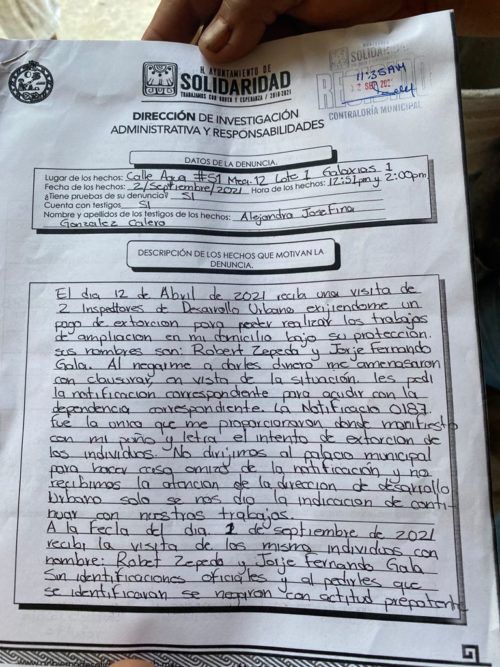 H. AYUNTAMIENTO DE
SOLIDARIDAD
TRABAJANDO CON HONOR Y ESPERANZA / 2018-2021
SOLIDARI
11:35AM
2 SEP 202
CONTRALORÍA MUNICIPAL
DIRECCIÓN DE INVESTIGACIÓN
ADMINISTRATIVA Y RESPONSABILIDADES
DATOS DE LA DENUNCIA.
Lugar de los hechos: Calle Agua #51 Mza. 12 Lote 1 Galaxias 1
Fecha de los hechos: 2/Septiembre/2021 Hora de los hechos: 12:51pm y 2:00pm
¿Tiene pruebas de su denuncia? SI
Cuenta con testigos SI
Nombre y apellidos de los testigos de los hechos: Alejandra Josefina
Gonzalez Calero
DESCRIPCIÓN DE LOS HECHOS QUE MOTIVAN LA
DENUNCIA.
El dia 12 de Abril de 2021 recibi una visita de
2 Inspectores de Desarrollo Urbano exijiendome un
pago de extorcion para poder realizar los trabajos
de ampliacion en mi domicilio bajo su protección.
sus nombres son: Robert Zepeda y Jorje Fernando
Gala. Al negarme a darles dinero me amenasaron
con clausurar, en vista de la situación. les pedi
la notificación correspondiente para acudir con la
dependencia correspondiente. La Notificacio 0187
fue la unica que me proporcionaron donde manifiesto
con mi puño y letra el intento de extorcion de
los individuos. No dirijmos al palacio municipal
para hacer caso omizo de la notificación y no
recibimos la atencion de la direccion de desarrollo
Urbano solo se nos dio la indicacion de conti-
nuar con nuestros trabajos.
A la Fecla del dia 2 de septiembre de 2021
recibi la visita de los mismo individuos con
nombre: Robet Zepeda y Jorje Fernando Gala
Sin identificaciones oficiales y al pedirles que
se identificaran se negaron con actitud prepotente